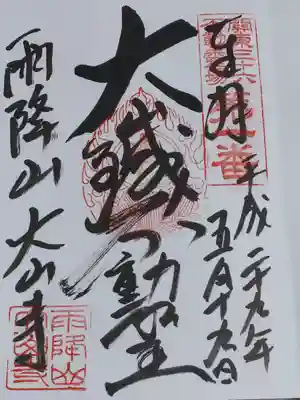 奉拝
關東三十六
不動靈場
第一番
平成二十九年
五月十九日
大鐵不動堂
雨降山大山寺
雨降山
大山寺